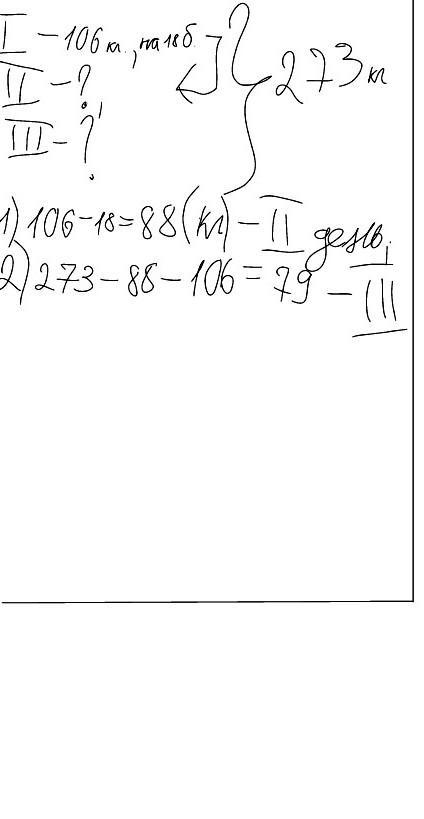 I – 106 кл., на 18 б.
II – ?
III – ?
273 кл
1) 106 – 18 = 88 (кл) – II день,
2) 273 – 88 – 106 = 79 – III